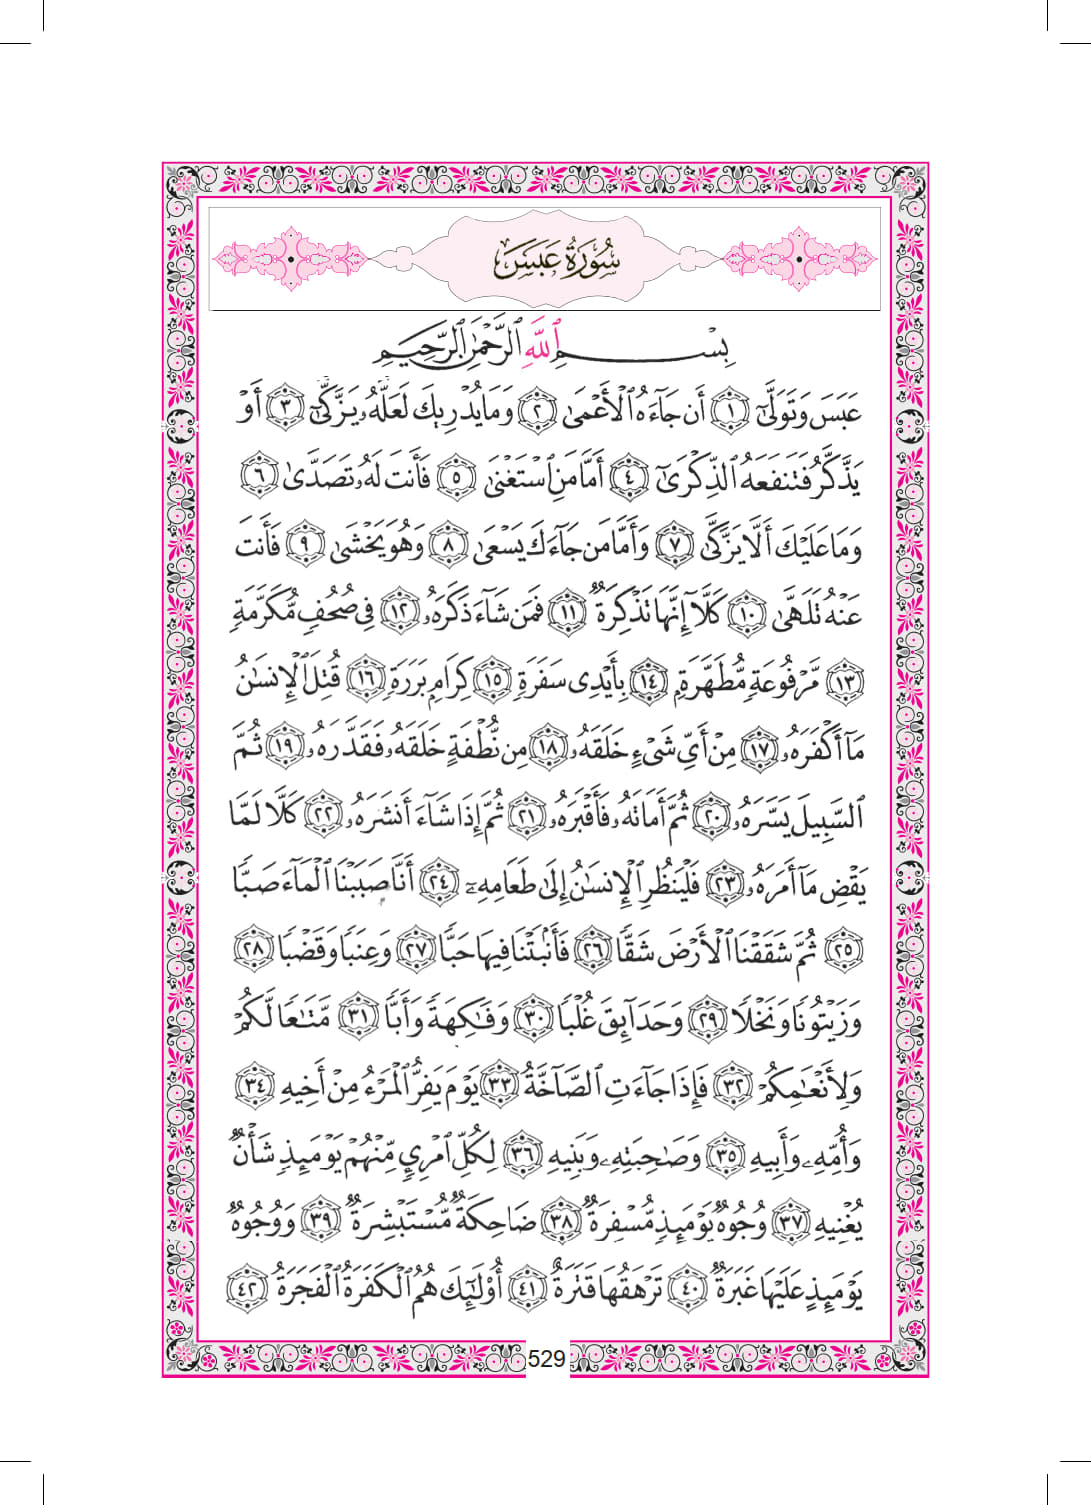 سُورَةُ عَبَسَ
بِسْمِ ٱللَّهِ ٱلرَّحْمَٰنِ ٱلرَّحِيمِ
عَبَسَ وَتَوَلَّىٰٓ ١ أَن جَآءَهُ ٱلْأَعْمَىٰ ٢ وَمَا يُدْرِيكَ لَعَلَّهُۥ يَزَّكَّىٰٓ ٣ أَوْ
يَذَّكَّرُ فَتَنفَعَهُ ٱلذِّكْرَىٰٓ ٤ أَمَّا مَنِ ٱسْتَغْنَىٰ ٥ فَأَنتَ لَهُۥ تَصَدَّىٰ ٦
وَمَا عَلَيْكَ أَلَّا يَزَّكَّىٰ ٧ وَأَمَّا مَن جَآءَكَ يَسْعَىٰ ٨ وَهُوَ يَخْشَىٰ ٩ فَأَنتَ
عَنْهُ تَلَهَّىٰ ١٠ كَلَّآ إِنَّهَا تَذْكِرَةٌ ١١ فَمَن شَآءَ ذَكَرَهُۥ ١٢ فِى صُحُفٍ مُّكَرَّمَةٍ
١٣ مَّرْفُوعَةٍ مُّطَهَّرَةٍۭ ١٤ بِأَيْدِى سَفَرَةٍ ١٥ كِرَامٍۭ بَرَرَةٍ ١٦ قُتِلَ ٱلْإِنسَٰنُ
مَآ أَكْفَرَهُۥ ١٧ مِنْ أَىِّ شَىْءٍ خَلَقَهُۥ ١٨ مِن نُّطْفَةٍ خَلَقَهُۥ فَقَدَّرَهُۥ ١٩ ثُمَّ
ٱلسَّبِيلَ يَسَّرَهُۥ ٢٠ ثُمَّ أَمَاتَهُۥ فَأَقْبَرَهُۥ ٢١ ثُمَّ إِذَا شَآءَ أَنشَرَهُۥ ٢٢ كَلَّا لَمَّا
يَقْضِ مَآ أَمَرَهُۥ ٢٣ فَلْيَنظُرِ ٱلْإِنسَٰنُ إِلَىٰ طَعَامِهِۦٓ ٢٤ أَنَّا صَبَبْنَا ٱلْمَآءَ صَبًّا
٢٥ ثُمَّ شَقَقْنَا ٱلْأَرْضَ شَقًّا ٢٦ فَأَنۢبَتْنَا فِيهَا حَبًّا ٢٧ وَعِنَبًا وَقَضْبًا ٢٨
وَزَيْتُونًا وَنَخْلًا ٢٩ وَحَدَآئِقَ غُلْبًا ٣٠ وَفَٰكِهَةً وَأَبًّا ٣١ مَّتَٰعًا لَّكُمْ
وَلِأَنْعَٰمِكُمْ ٣٢ فَإِذَا جَآءَتِ ٱلصَّآخَّةُ ٣٣ يَوْمَ يَفِرُّ ٱلْمَرْءُ مِنْ أَخِيهِ ٣٤
وَأُمِّهِۦ وَأَبِيهِ ٣٥ وَصَٰحِبَتِهِۦ وَبَنِيهِ ٣٦ لِكُلِّ ٱمْرِئٍ مِّنْهُمْ يَوْمَئِذٍ شَأْنٌ
يُغْنِيهِ ٣٧ وُجُوهٌ يَوْمَئِذٍ مُّسْفِرَةٌ ٣٨ ضَاحِكَةٌ مُّسْتَبْشِرَةٌ ٣٩ وَوُجُوهٌ
يَوْمَئِذٍ عَلَيْهَا غَبَرَةٌ ٤٠ تَرْهَقُهَا قَتَرَةٌ ٤١ أُو۟لَٰٓئِكَ هُمُ ٱلْكَفَرَةُ ٱلْفَجَرَةُ ٤٢
529